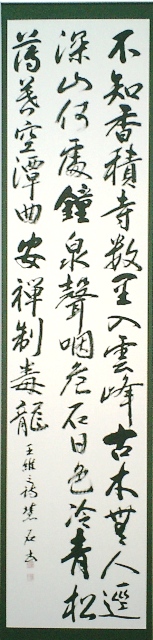 不知香積寺数里入雲峰古木無人逕
深山何處鐘泉聲咽危石日色冷青松
薄暮空潭曲安禅制毒龍
王維之詩